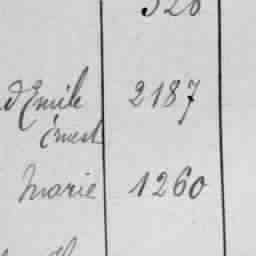 d'Emile 2187
Ernest
Marie 1260